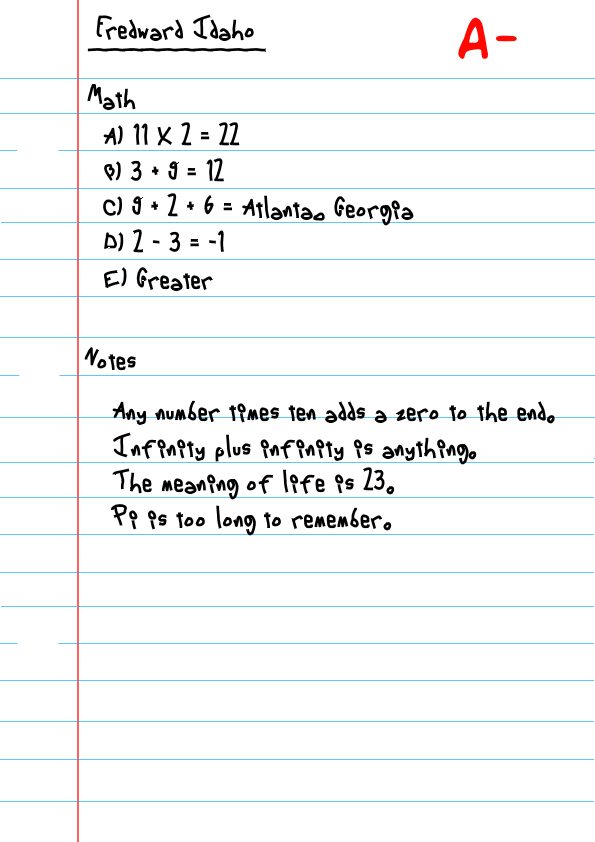 Fredward Idaho
A-
Math
A) 11 x 2 = 22
B) 3 + 9 = 12
C) 9 + 2 + 6 = Atlanta, Georgia
D) 2 - 3 = -1
E) Greater
Notes
Any number times ten adds a zero to the end.
Infinity plus infinity is anything.
The meaning of life is 23.
Pi is too long to remember.